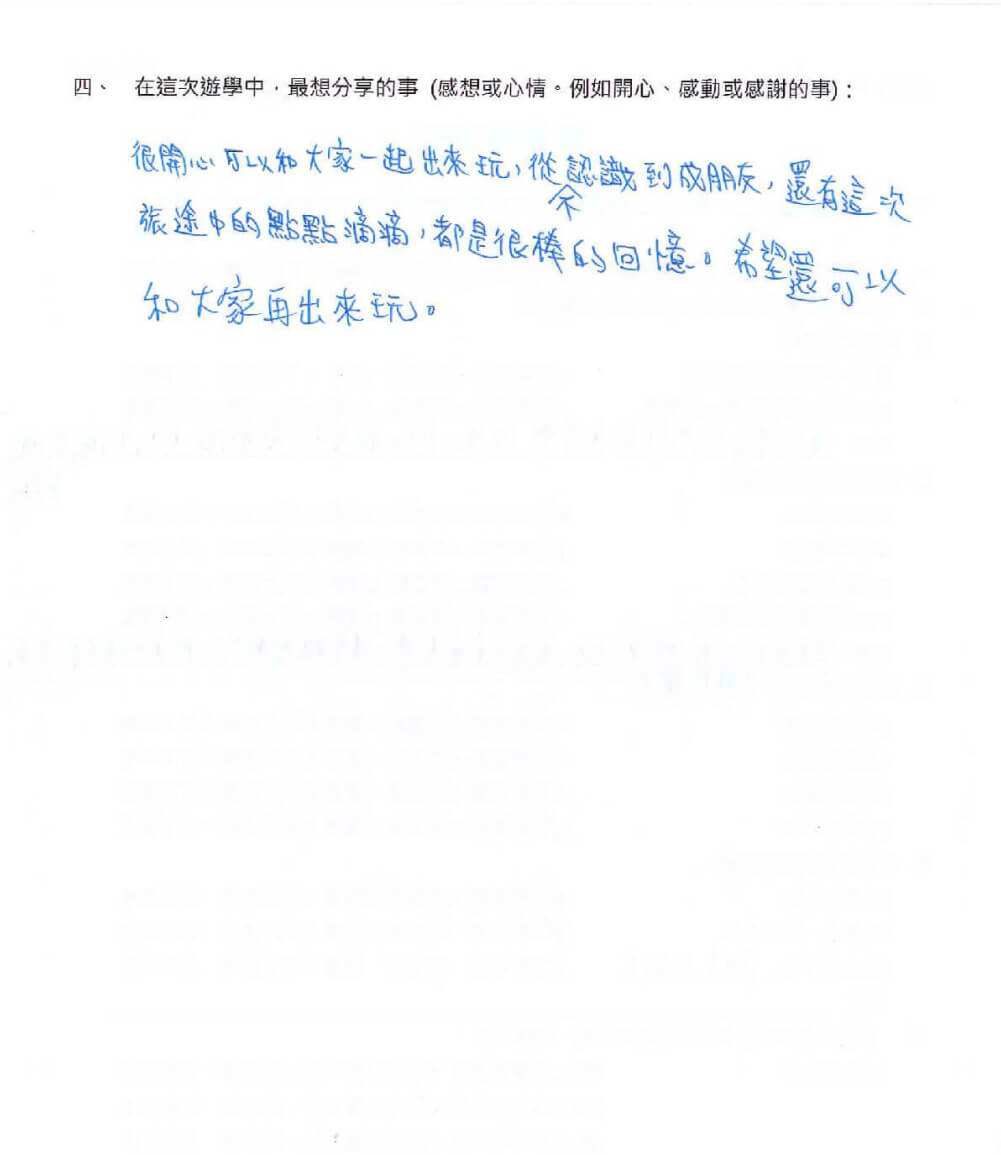 四、 在這次遊學中，最想分享的事 (感想或心情。例如開心、感動或感謝的事)：
很開心可以和大家一起出來玩，從不認識到成朋友，還有這次
旅途中的點點滴滴，都是很棒的回憶。希望還可以
和大家再出來玩。